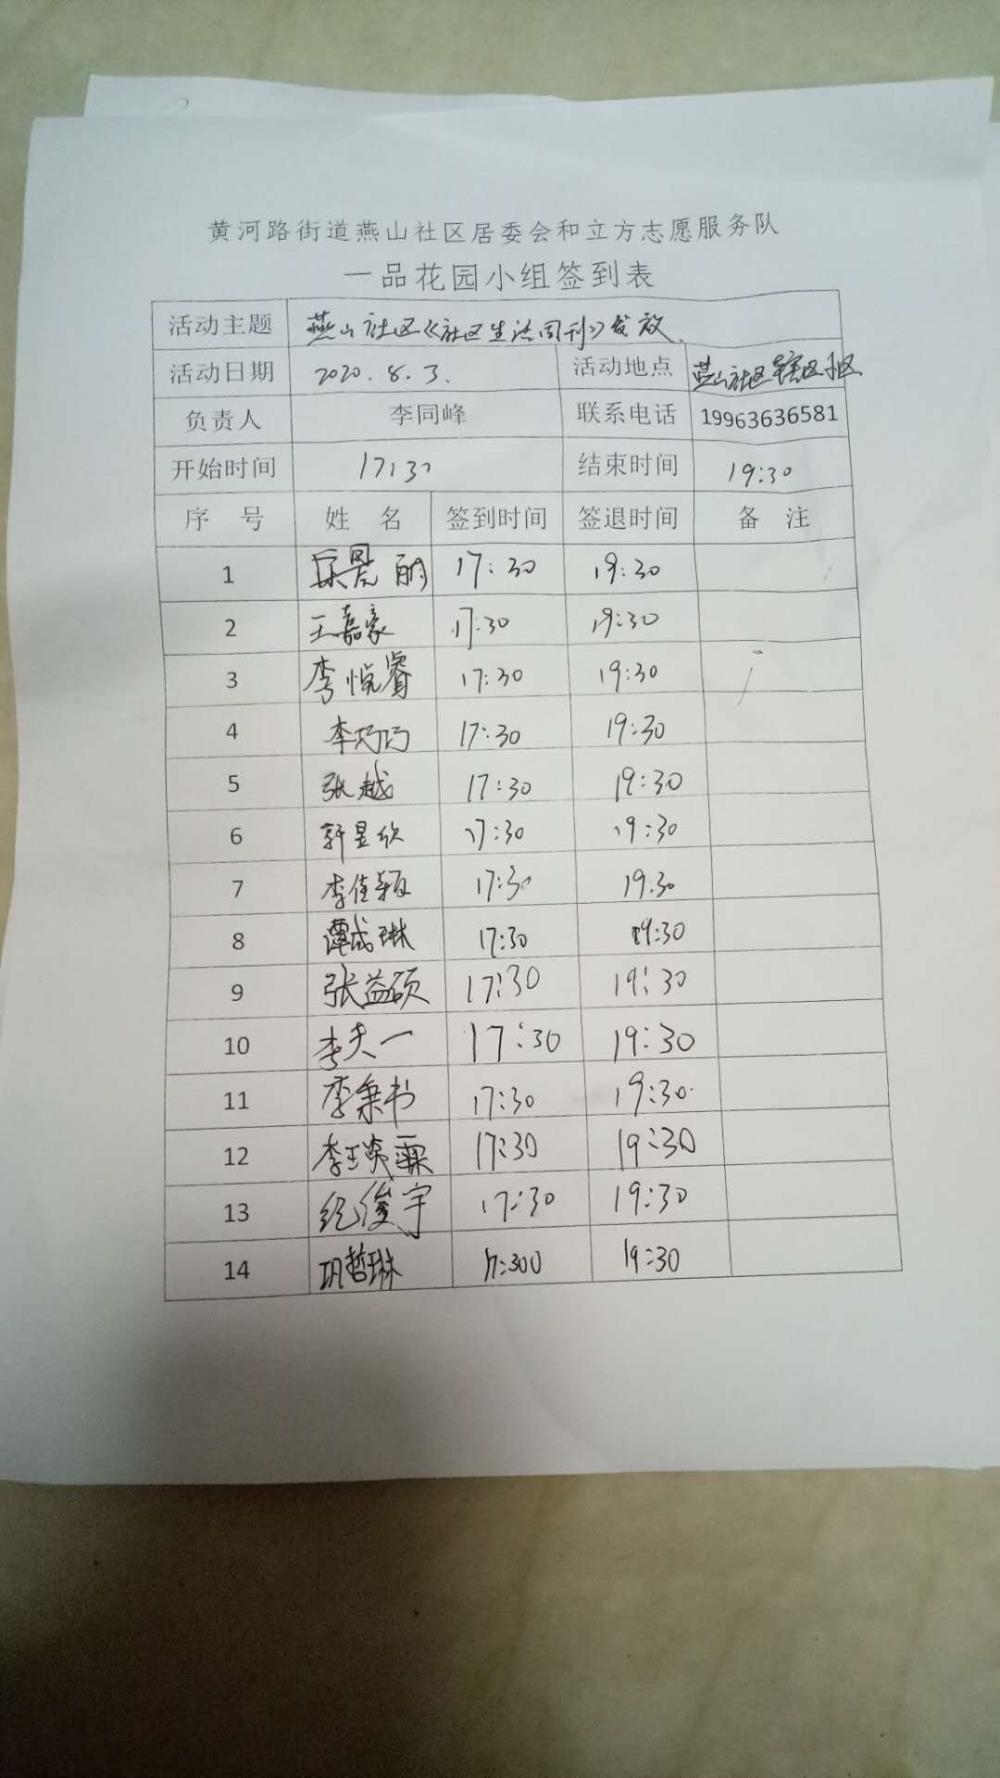 黄河路街道燕山社区居委会和立方志愿服务队
一品花园小组签到表
活动主题 燕山社区《社区生活周刊》发放.
活动日期 2020.8.3. 活动地点 燕山社区辖区小区
负责人 李同峰 联系电话 19963636581
开始时间 17:30 结束时间 19:30
序 号 姓 名 签到时间 签退时间 备 注
1 17:30 19:30
2 王嘉豪 17:30 19:30
3 李悦睿 17:30 19:30
4 李巧巧 17:30 19:30
5 张越 17:30 19:30
6 昱欣 17:30 19:30
7 李佳颖 17:30 19.30
8 谭成琳 17:30 19:30
9 张益硕 17:30 19:30
10 李夫一 17:30 19:30
11 李秉书 17:30 19:30
12 李琰霖 17:30 19:30
13 纪俊宇 17:30 19:30
14 巩哲琳 17:300 19:30